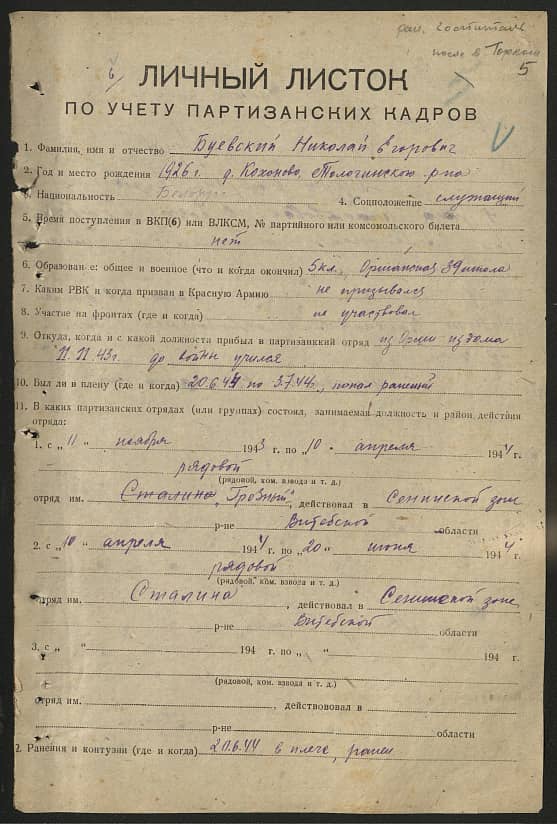 после в
5
б/
ЛИЧНЫЙ ЛИСТОК
ПО УЧЕТУ ПАРТИЗАНСКИХ КАДРОВ
1. Фамилия, имя и отчество Буевский Николай Егорович
2. Год и место рождения 1926 г. д. Коханово, Толочинского р-на
3. Национальность Белорус 4. Соцположение служащий
5. Время поступления в ВКП(б) или ВЛКСМ, № партийного или комсомольского билета
нет
6. Образован е: общее и военное (что и когда окончил) 5 кл. Оршанская школа
7. Каким РВК и когда призван в Красную Армию не призывался
8. Участие на фронтах (где и когда) не участвовал
9. Откуда, когда и с какой должности прибыл в партизанкий отряд из Орши из дома
11.11.43 г. до войны учился
10. Был ли в плену (где и когда) 20.6.44 по 3.7.44г., попал раненый
11. В каких партизанских отрядах (или группах) состоял, занимаемая должность и район действия
отряда:
1. с „ 11 „ ноября 1943 г. по „ 10 „ апреля 1944 г.
рядовой
(рядовой, ком. взвода и т. д.)
отряд им. Сталина „Грозный“, действовал в Сеннинской зоне
р-не Витебской области
2. с „ 10 „ апреля 1944 г. по „ 20 „ июня 1944 г.
рядовой
(рядовой, ком. взвода и т. д.)
отряд им. Сталина, действовал в Сеннинской зоне
р-не Витебской области
3. с „ „ 194 г. по „ „ 194 г.
(рядовой, ком. взвода и т. д.)
отряд им. , действовал в
р-не области
2. Ранения и контузии (где и когда) 20.6.44 в плечо, ранен